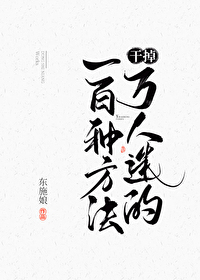 干掉
万人迷的
一百种方法
东施娘
作品